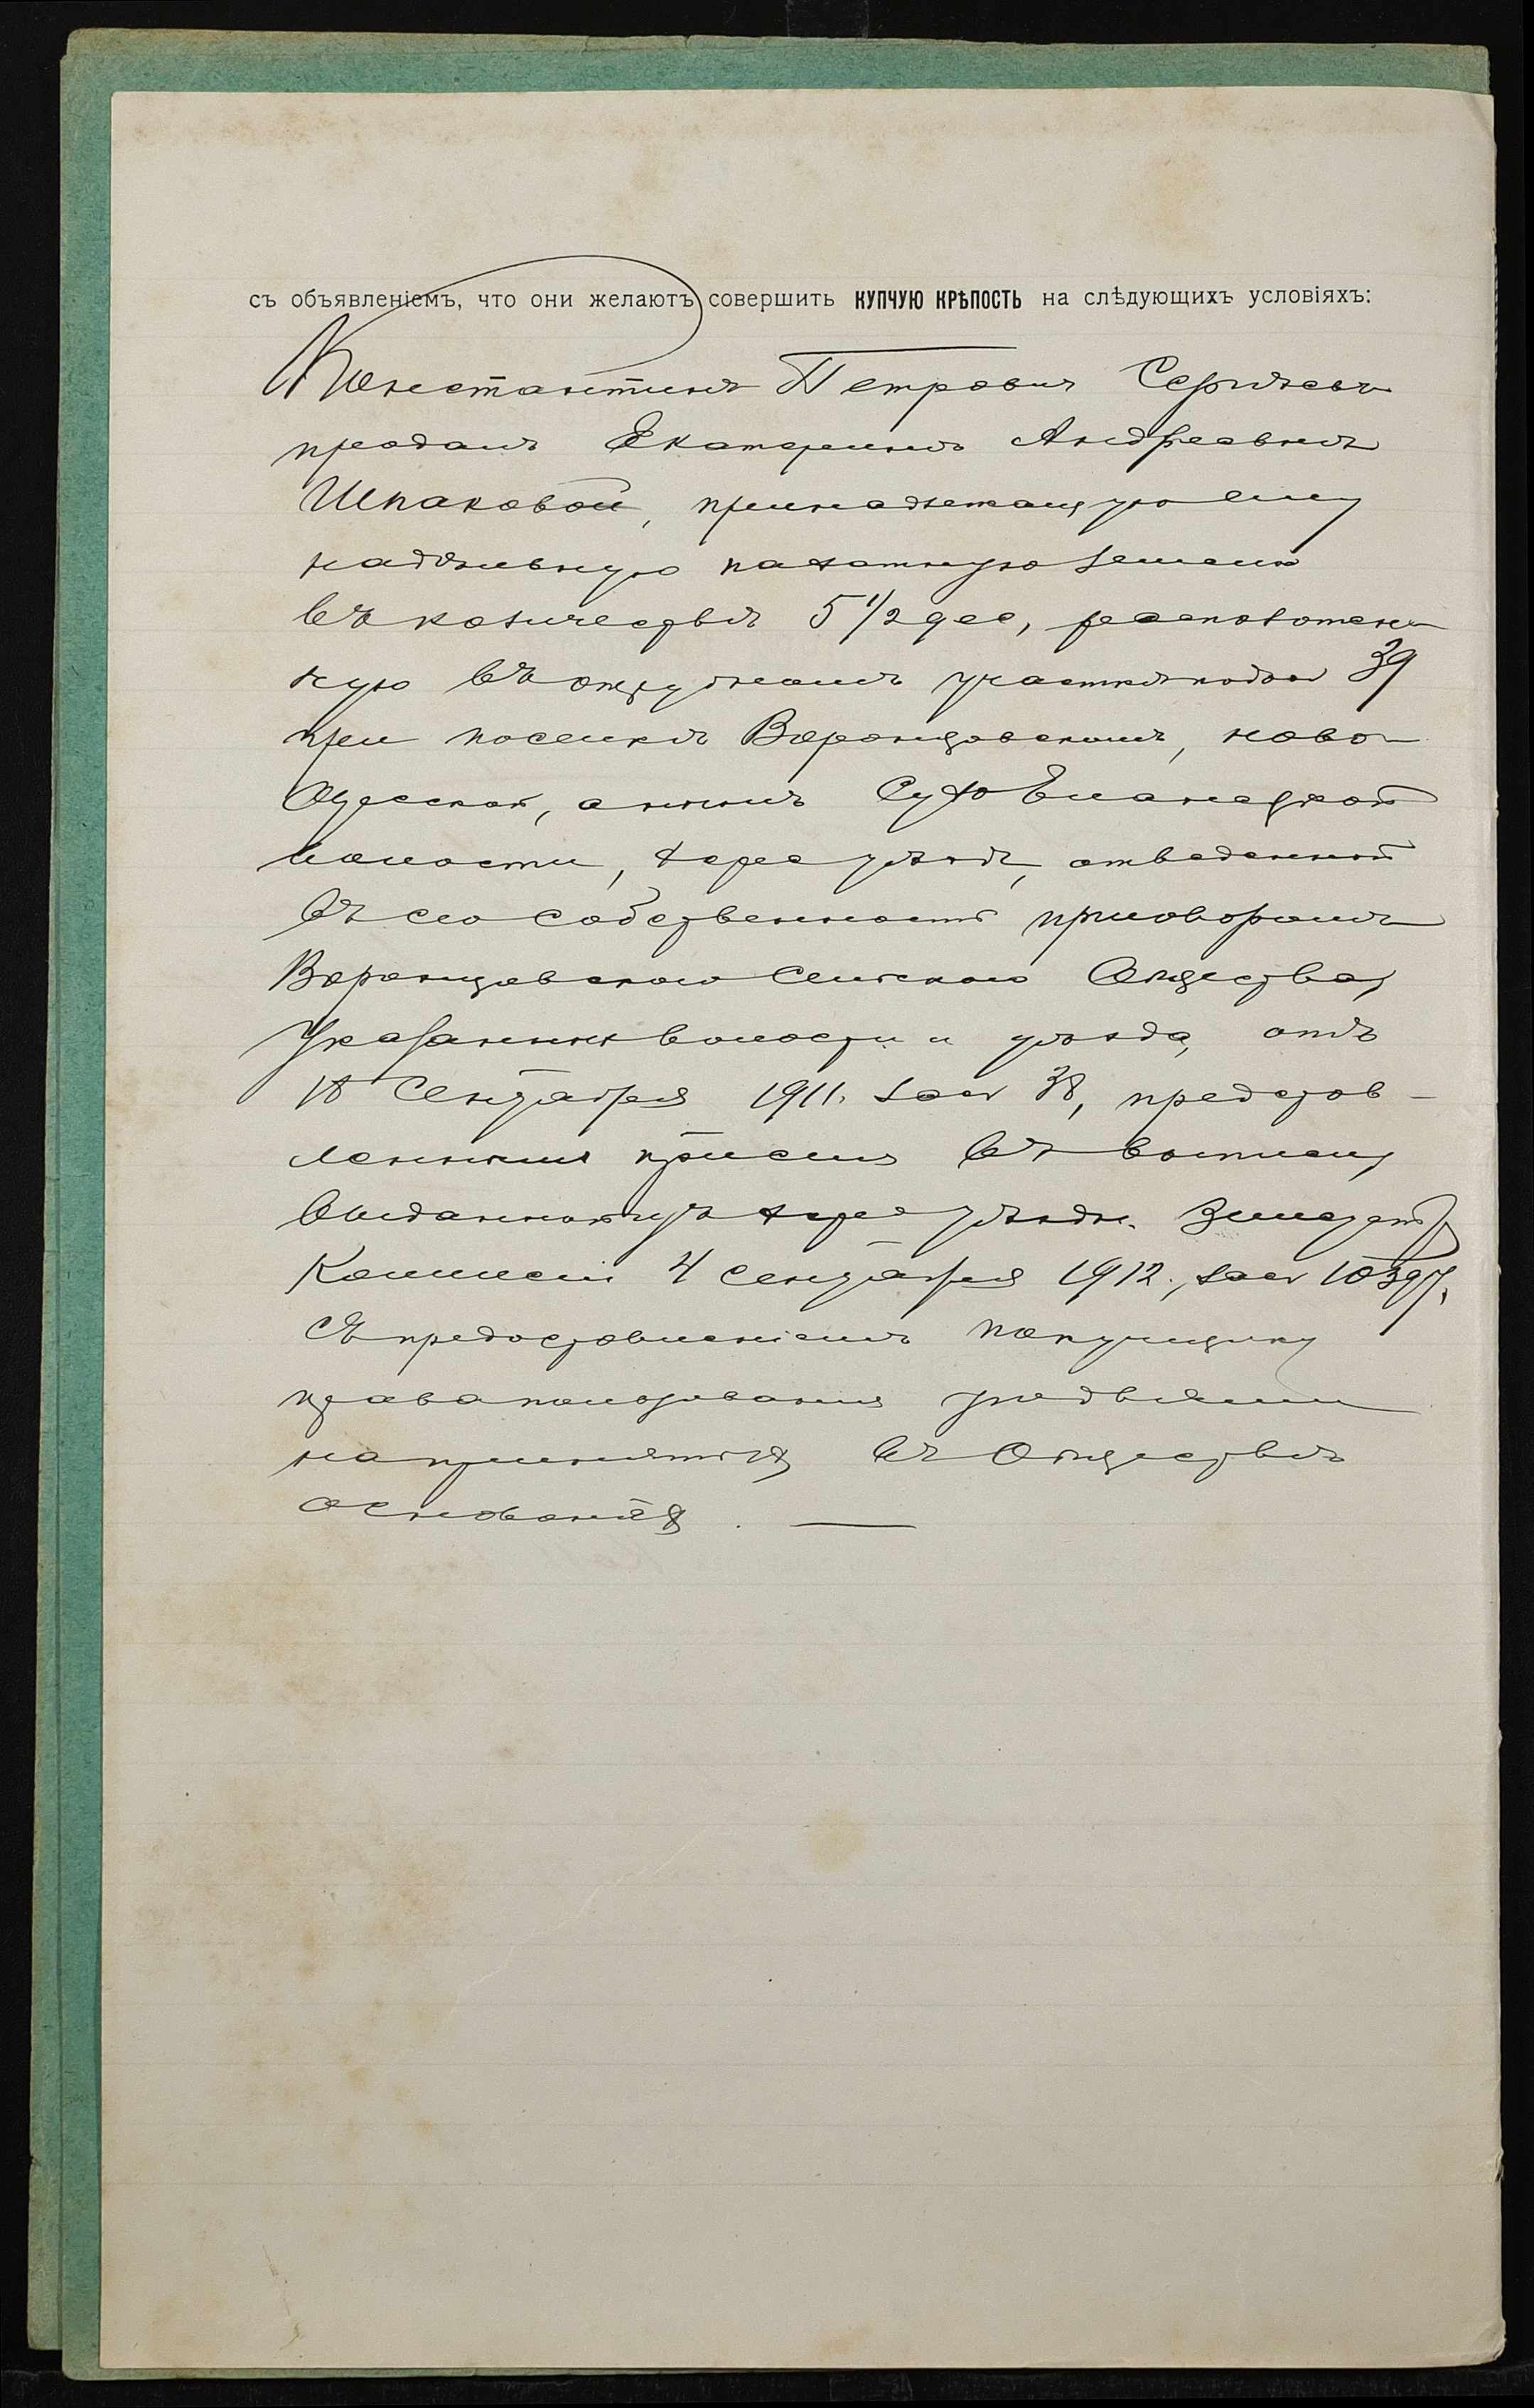 съ объявленіемъ, что они желаютъ совершить КУПЧУЮ КРѢПОСТЬ на слѣдующихъ условіяхъ:
Константинъ Петровичъ Сергѣевъ
продалъ Екатеринѣ Андреевнѣ
Шпаковой, принадлежащую ему
надѣльную пахатную землю
въ количествѣ 5 1/2 дес, расположен-
ную въ отрубномъ участкѣ подъ № 39
при поселкѣ Воронцовскомъ, ново-
Одесской, а нынѣ Сухо Еланецкой
волости, Херс уѣзда, отведенной
въ его собственность приговоромъ
Воронцовскаго Сельскаго Общества,
Указанныхъ волости и уѣзда, отъ
18 Сентября 1911. за № 38, предстов-
леннымъ при семъ въ выписи,
выданной изъ Херс уѣздн. Землеуст
Коммисіи 4 сентября 1912., за № 10397,
Съ предоставленіемъ покупщику
права пользованія угодьями
на принятыхъ въ Обществѣ
основаніяхъ. —